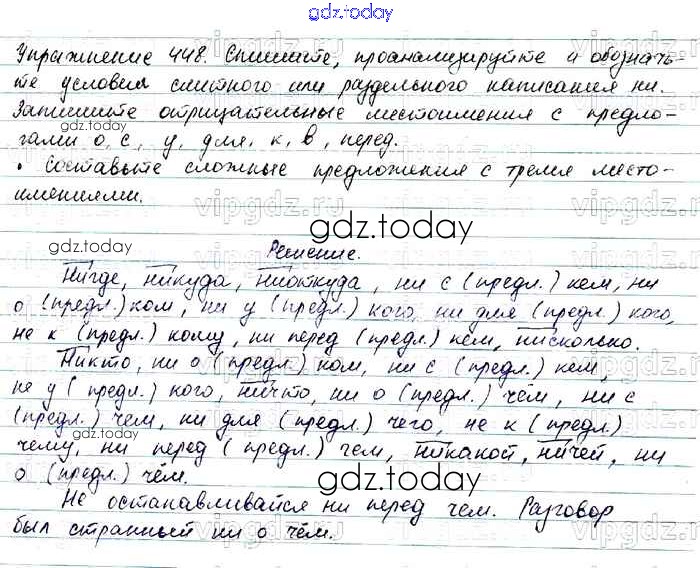 gdz.today
Упражнение 448. Спишите, проанализируйте и обозначь-
те условия слитного или раздельного написания ни.
Запишите отрицательные местоимения с предло-
гами о, с, у, для, к, в, перед.
gdz.today
• Составьте сложные предложения с тремя место-
имениями.
vipgdz.ru
gdz.today
gdz.today
Решение.
Нигде, никуда, ниоткуда, ни с (предл.) кем, ни
о (предл.) ком, ни у (предл.) кого, ни для (предл.) кого,
не к (предл.) кому, ни перед (предл.) кем, нисколько.
Никто, ни о (предл.) ком, ни с (предл.) кем,
не у (предл.) кого, ничто, ни о (предл.) чём, ни с
(предл.) чем, ни для (предл.) чего, не к (предл.)
чему, ни перед (предл.) чем, никакой, ничей, ни
о (предл.) чём.
gdz.today
gdz.today
Не останавливайся ни перед чем. Разговор
был странный ни о чём.
gdz.today